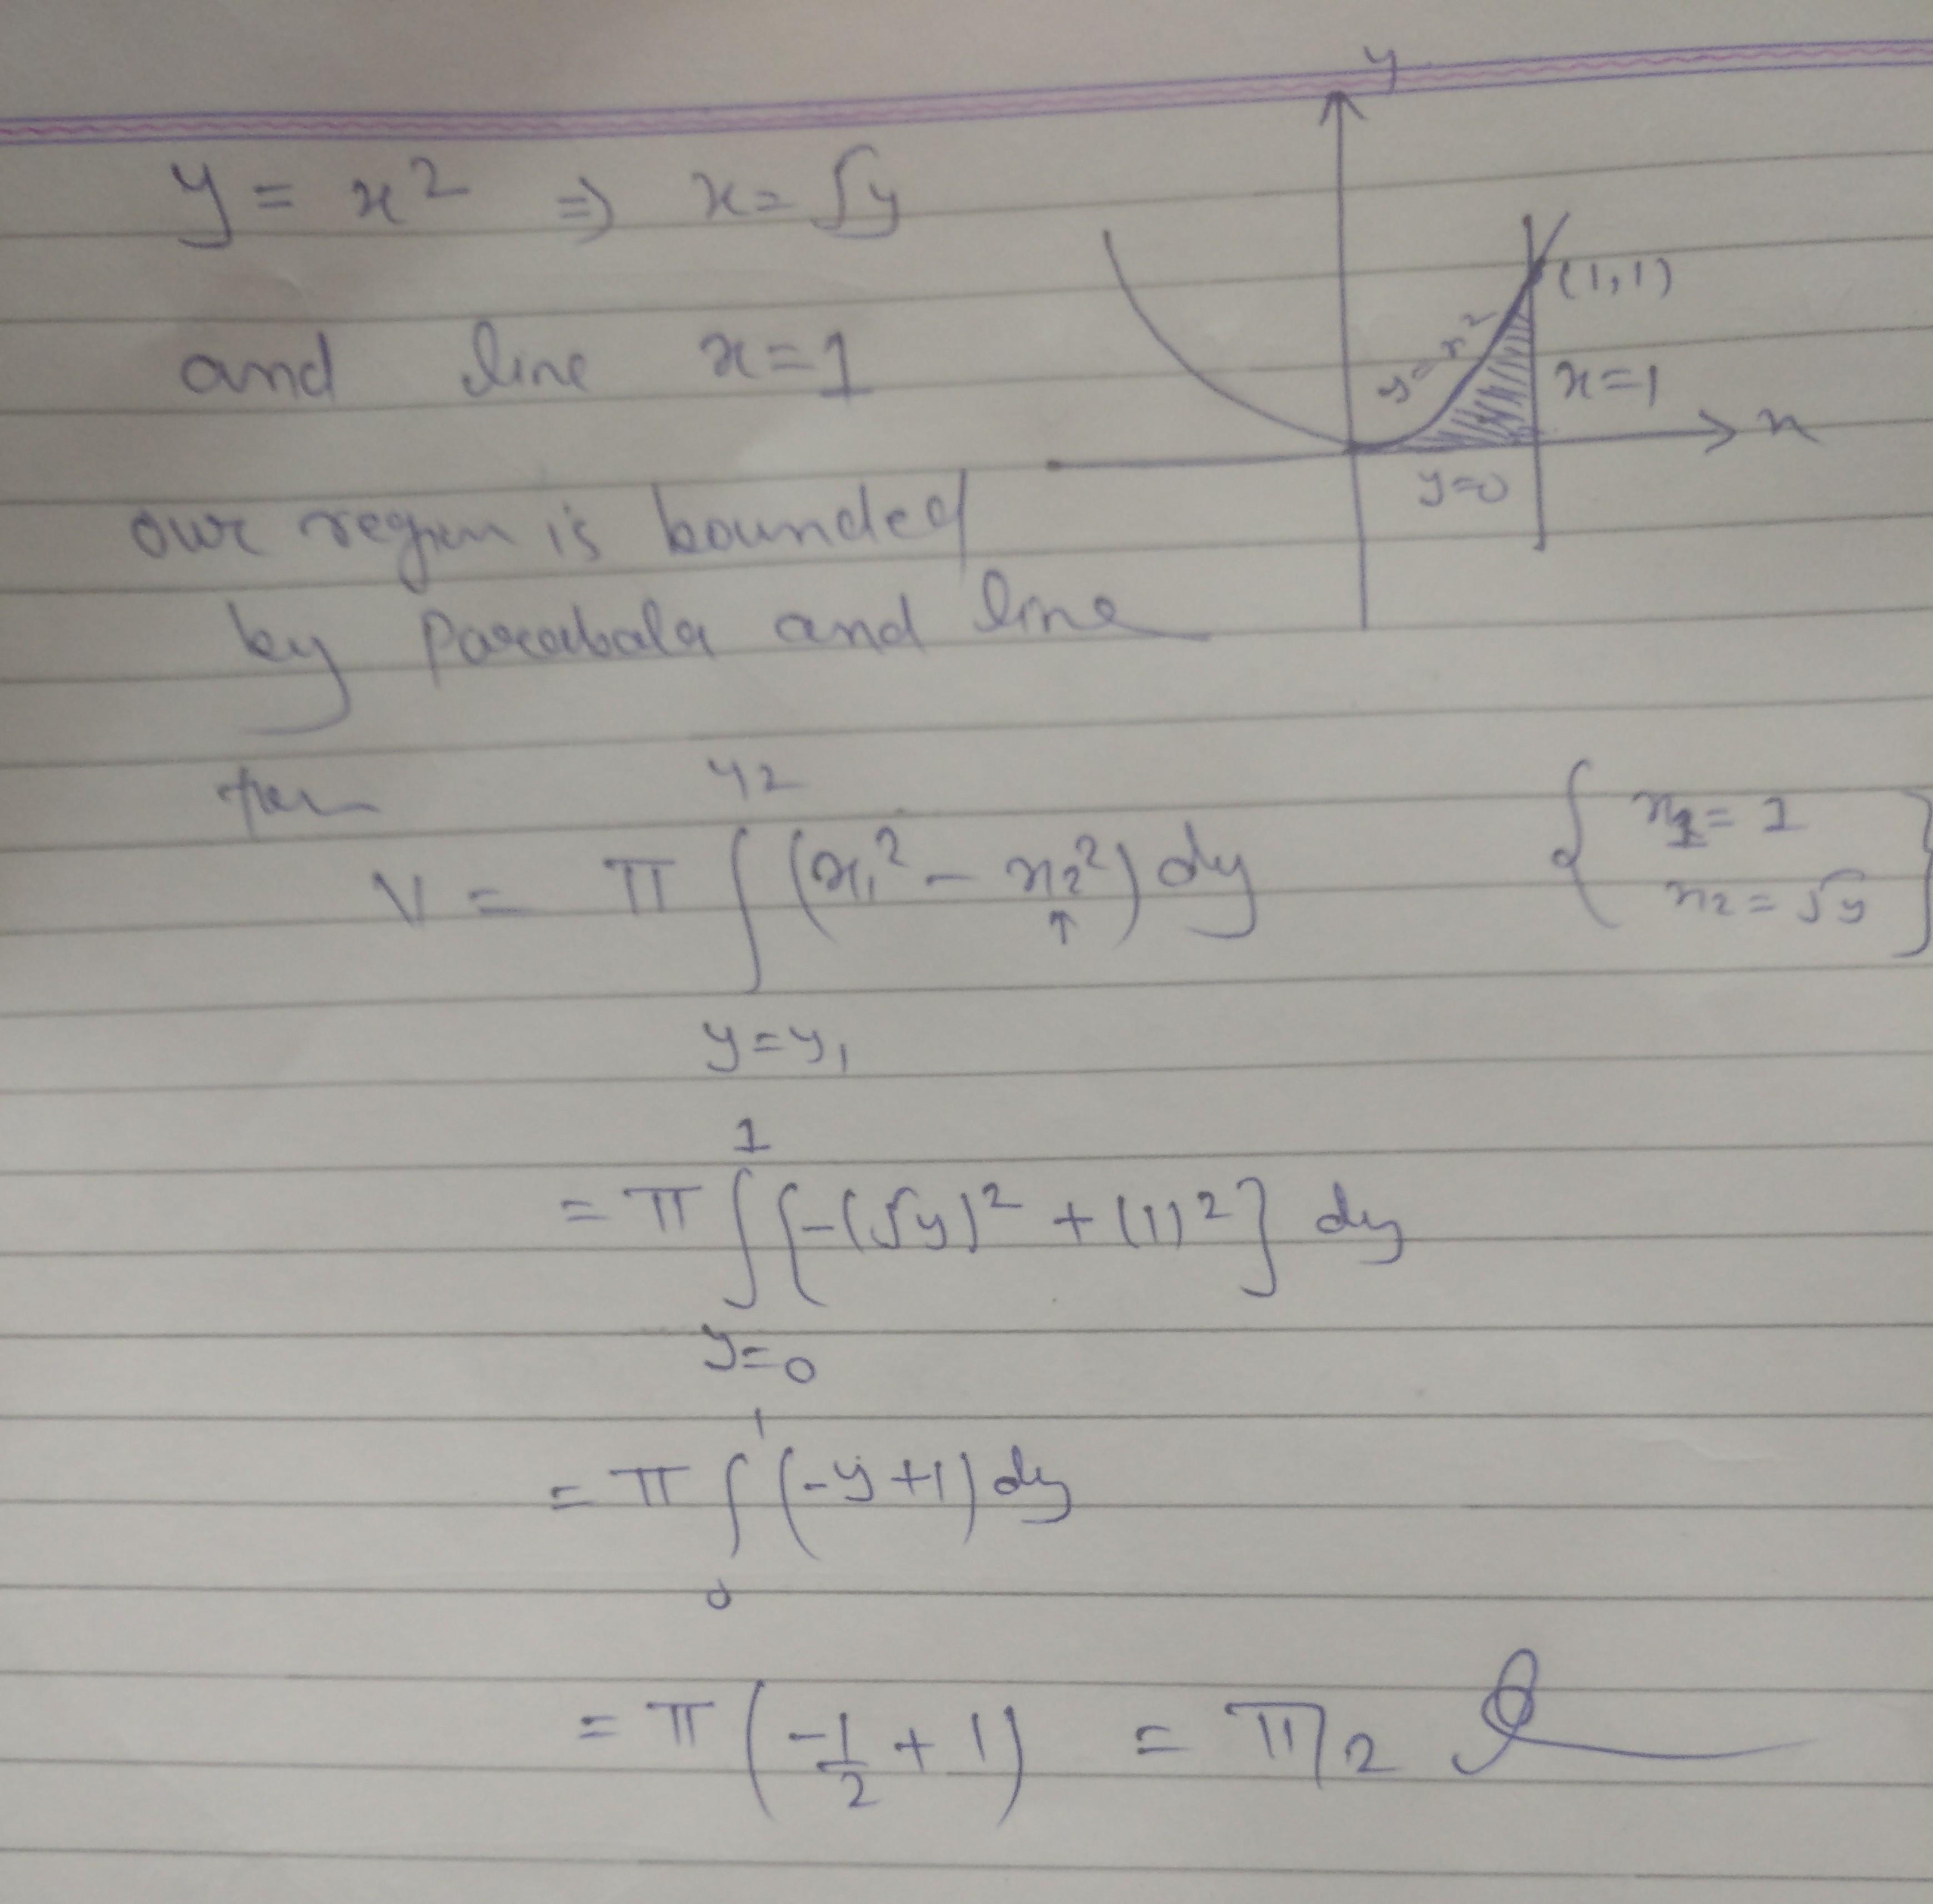 y = x² ⇒ x = √y
and line x = 1
our region is bounded
by Parabala and line
y
(1,1)
y = x²
x=1
x
y=0
V = π ∫_{y=y₁}^{y₂} (x₁² - x₂²) dy
↑
{ x₁ = 1
x₂ = √y }
= π ∫_{y=0}^{1} {-(√y)² + (1)²} dy
= π ∫_{0}^{1} (-y+1) dy
= π (-1/2 + 1) = π/2